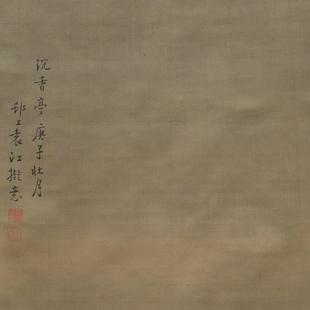 沉香亭庚子壯月
邗上袁江擬意